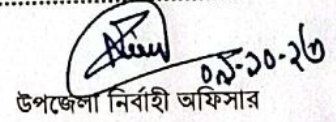 ০৯-১০-২৩
উপজেলা নির্বাহী অফিসার